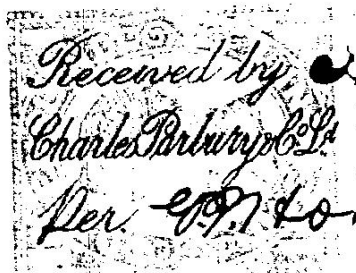 Received by
Charles Parbury & Co. Ld
Per.